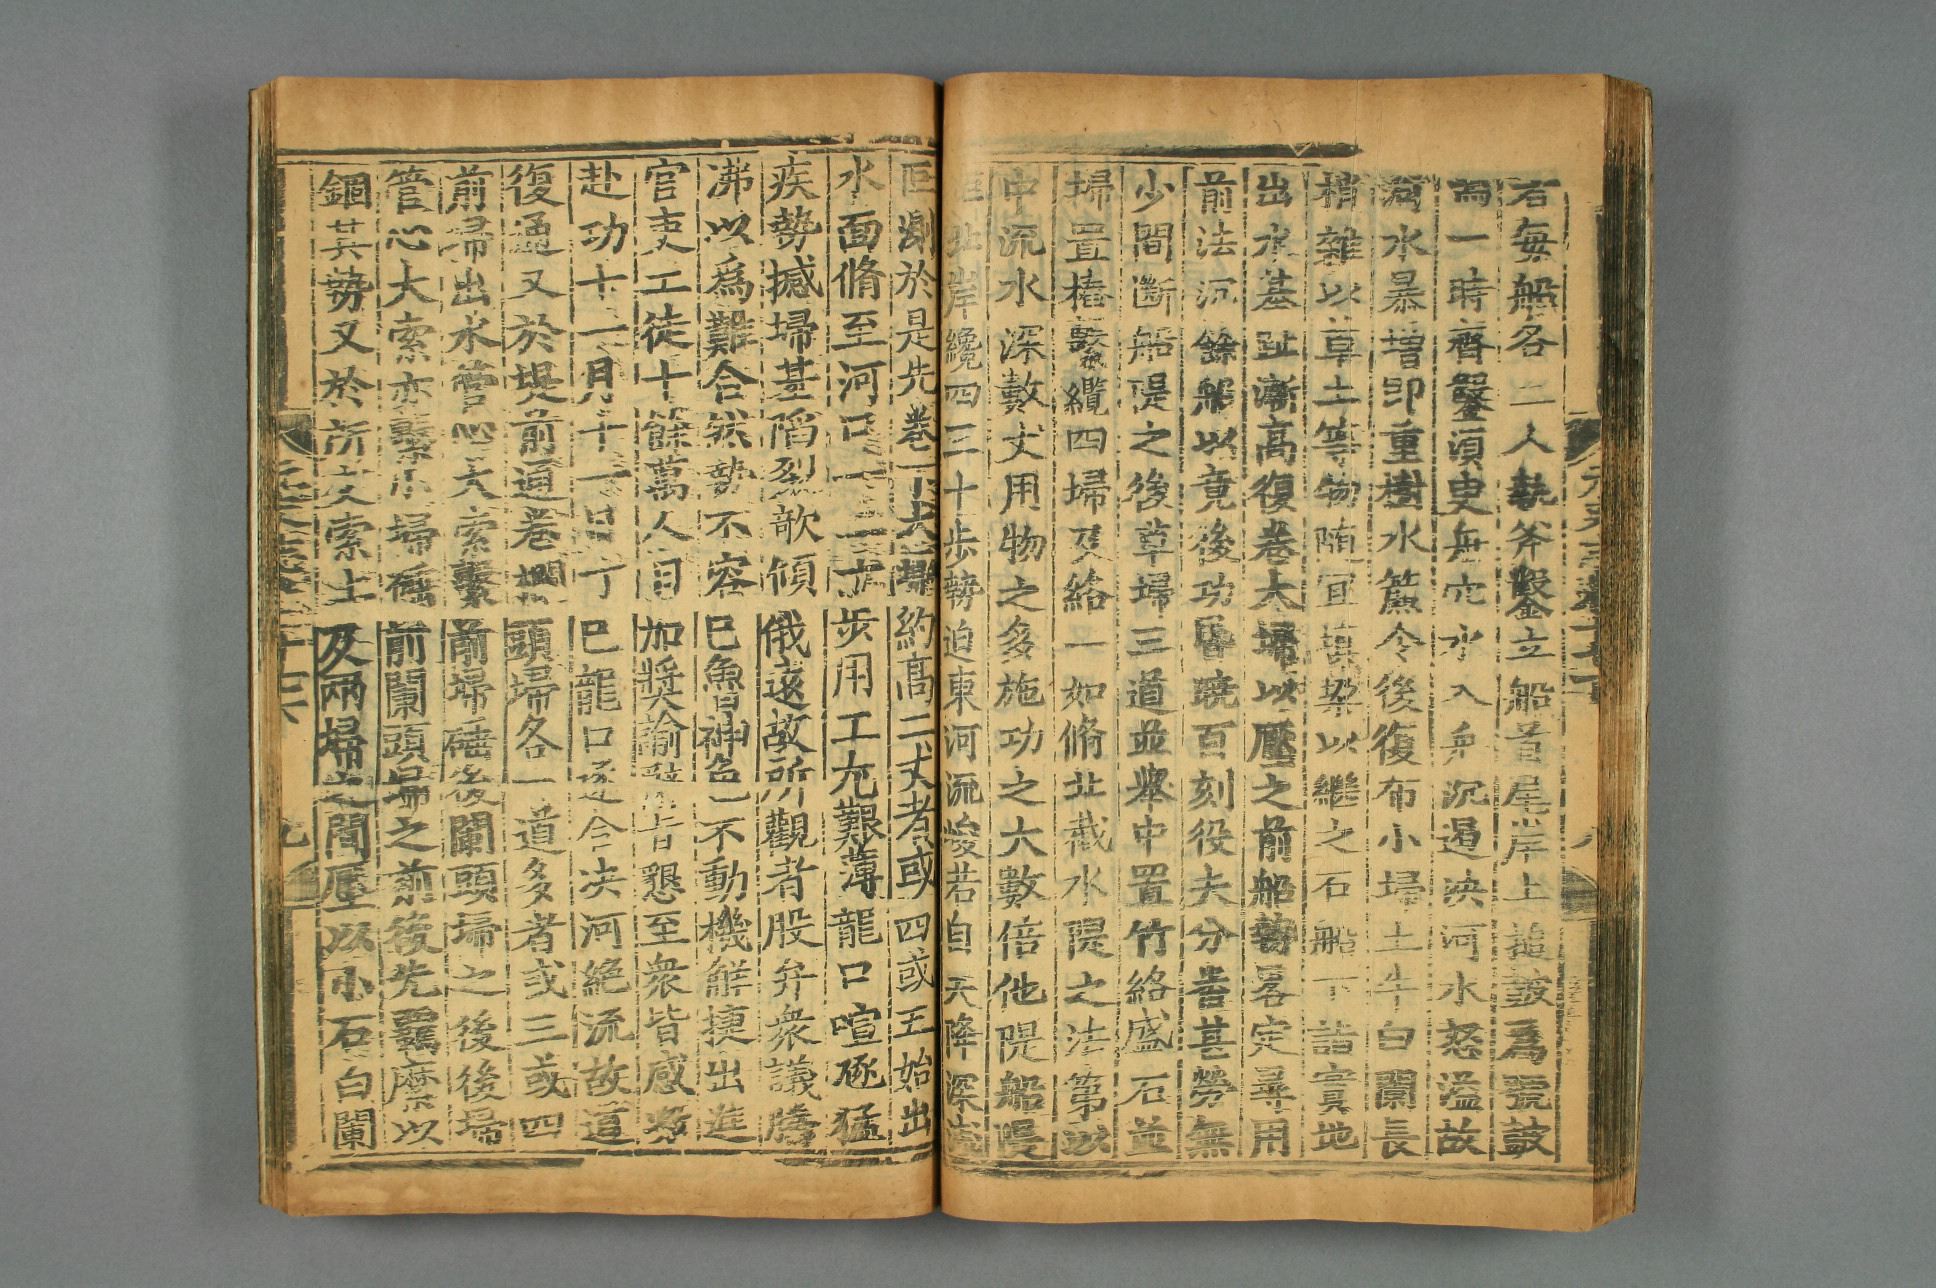 右每船各二人執斧鑿立船首尾岸上搥鼓爲號鼓
鳴一時齊鑿須臾舟穴水入舟沉遏決河水怒溢故
河水暴增即重樹水簾令後復布小埽土牛白闌長
梢雜以草土等物随宜填垜以繼之石船下詣實地
出水基趾漸高復卷大埽以壓之前船勢畧定尋用
前法沉餘船以竟後功昬曉百刻役夫分畨甚勞無
少間斷船隄之後草埽三道並舉中置竹絡盛石並
埽置樁繫纜四埽及絡一如脩北截水隄之法第以
中流水深數丈用物之多施功之大數倍他隄船隄
距北岸纔四三十步勢迫東河流峻若自天降深淺
叵測於是先卷下大埽約高二丈者或四或五始出
水面脩至河口一二十步用工尤艱薄龍口喧豗猛
疾勢撼埽基陷裂欹傾俄遠故所觀者股弁衆議騰
沸以爲難合然勢不容已魯神色不動機解捷出進
官吏工徒十餘萬人日加奬諭辭旨懇至衆皆感激
赴功十一月十一日丁巳龍口遂合决河絕流故道
復通又於堤前通卷欄頭埽各一道多者或三或四
前埽出水管心大索繫前埽硾後闌頭埽之後後埽
管心大索亦繫小埽硾前闌頭埽之前後先羈縻以
錮其勢又於所交索上及兩埽之間壓以小石白闌